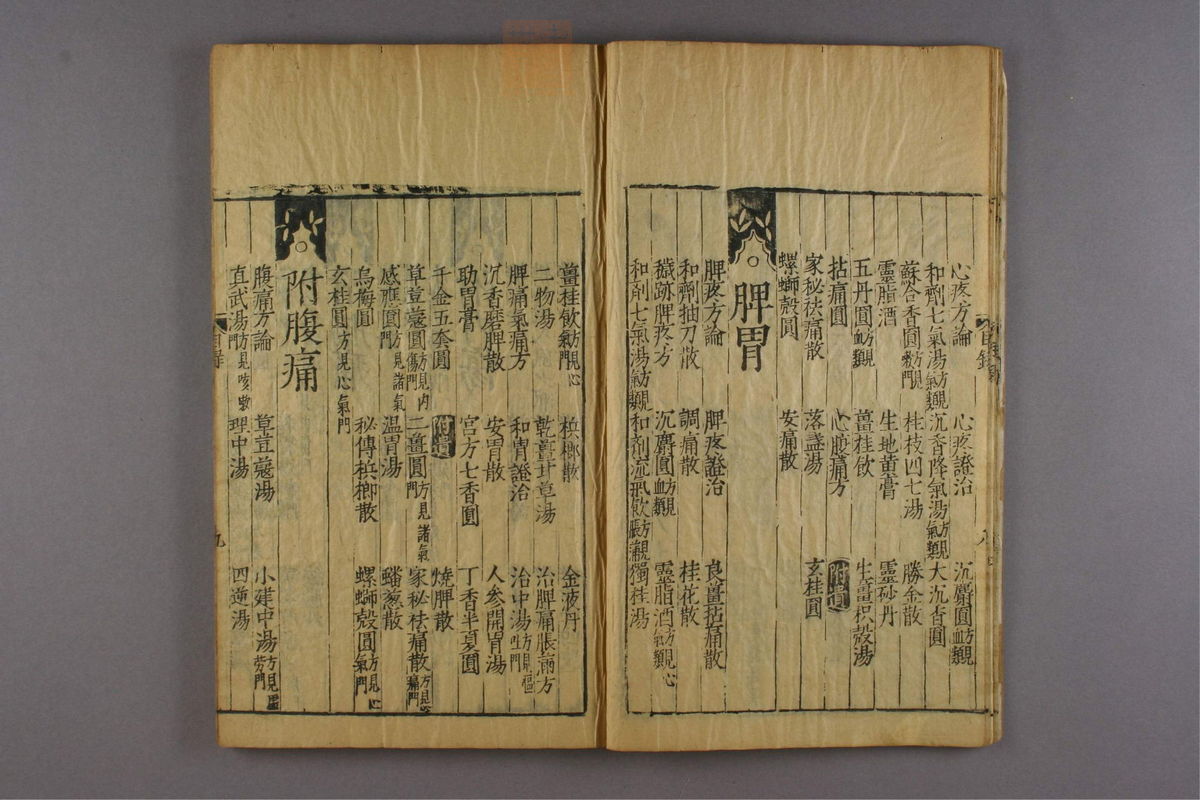 心疼方論 心疼證治 沉麝圓
和劑七氣湯 沉香降氣湯 大沉香圓
蘇合香圓 桂枝四七湯 勝金散
靈脂酒 生地黃膏 靈砂丹
五丹圓 薑桂飲 生薑枳殼湯
拈痛圓 心腹痛方 附遺
家秘祛痛散 落盞湯 玄桂圓
螺螄殼圓 安痛散
脾胃
脾疼方論 脾疼證治 良薑拈痛散
和劑抽刀散 調痛散 桂花散
穢跡脾疼方 沉麝圓 靈脂酒
和劑七氣湯 和劑流氣飲 獨桂湯
薑桂飲方見心氣門 梹榔散 金液丹
二物湯 乾薑甘草湯 治脾痛脹滿方
脾痛氣痛方 和胃證治 治中湯方見嘔吐門
沉香磨脾散 安胃散 人參開胃湯
助胃膏 宮方七香圓 丁香半夏圓
千金五套圓 附遺 燒脾散
草荳蔻圓方見內傷門 二薑圓方見諸氣門 家秘祛痛散方見心痛門
感應圓方見諸氣門 溫胃湯 蟠葱散
烏梅圓 秘傳梹榔散 螺螄殼圓方見心氣門
玄桂圓方見心氣門
附腹痛
腹痛方論 草荳蔻湯 小建中湯方見虛勞門
直武湯方見咳嗽門 理中湯 四逆湯
目錄 八
九